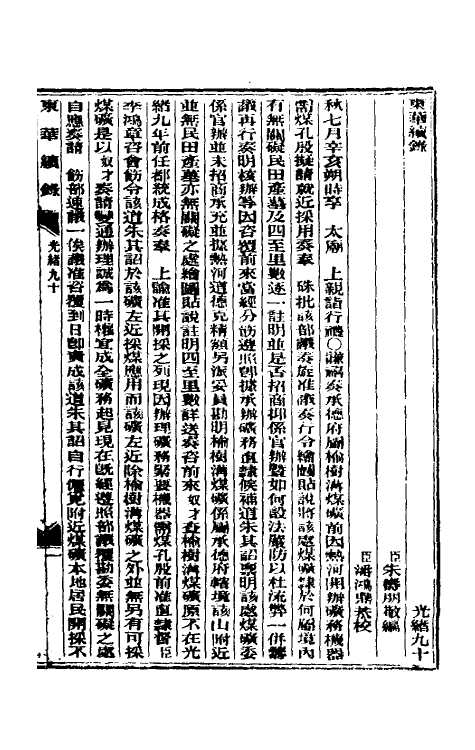 東華續錄
光緒九十
臣朱壽朋敬編
臣潘鴻鼎恭校
秋七月辛亥朔時享　太廟　上親詣行禮○謙禧奏承德府屬榆樹溝煤礦前因熱河開辦礦務機器
需煤孔殷擬請就近採用奏奉　硃批該部議奏旋准議奏行令繪圖貼說將該處煤礦隸於何屬境內
有無關礙民田產墓及四至里數逐一註明並是否招商抑係官辦暨如何設法嚴防以杜流弊一併籌
議再行奏明核辦等因咨覆前來當經分飭遵照卽據承辦礦務直隸候補道朱其詔稟明該處煤礦委
係官辦並未招商承充並據熱河道德克精額另派委員勘明榆樹溝煤礦係屬承德府轄境該山附近
並無民田產墓亦無關礙之處繪圖貼說註明四至里數詳送奏咨前來奴才查榆樹溝煤礦原不在光
緒九年前任都統成格奏奉　上諭准其開採之列現因辦理礦務緊要機器需煤孔殷前准直隸督臣
李鴻章咨會飭令該道朱其詔於該礦左近採煤應用而該礦左近除榆樹溝煤礦之外並無另有可採
煤礦是以奴才奏請變通辦理誠爲一時權宜成全礦務起見現在旣經遵照部議覆勘委無關礙之處
自應奏請　飭部速議一俟議准咨覆到日卽責成該道朱其詔自行僱覓附近煤礦本地居民開採不
東華續錄
光緒九十